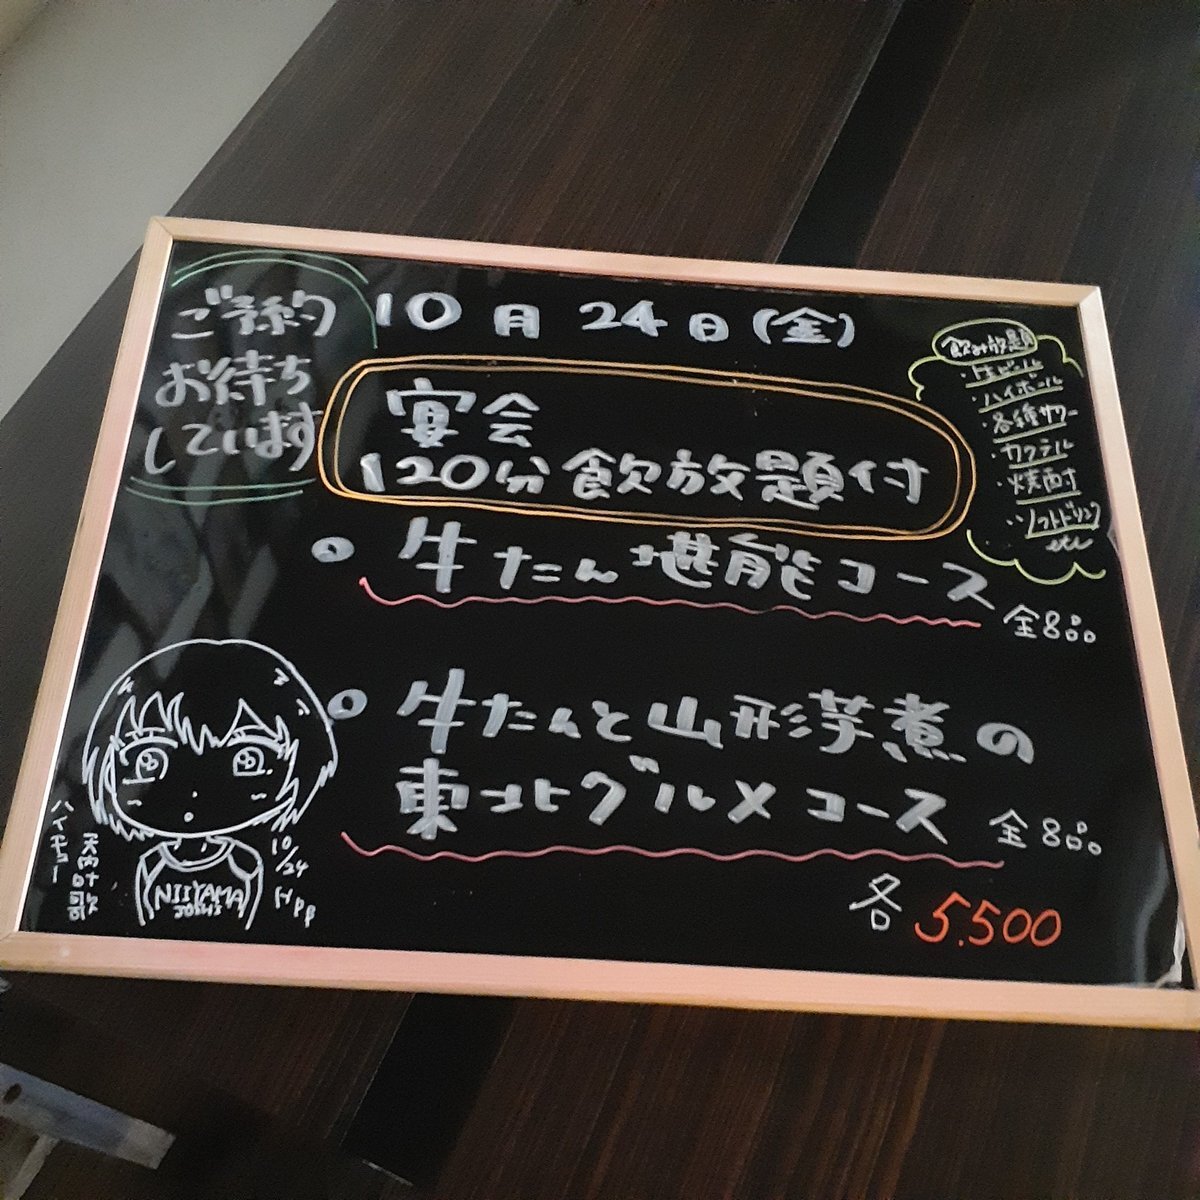 ご予約
お待ち
しています
10月24日(金)
宴会
120分飲放題付
牛たん堪能コース
全8品
牛たんと山形芋煮の
東北グルメコース
全8品
各5.500
飲み放題
・生ビール
・ハイボール
・各種サワー
・カクテル
・焼酎
・ソフトドリンク
etc
10/24
NIIYAMA
ハイキュー